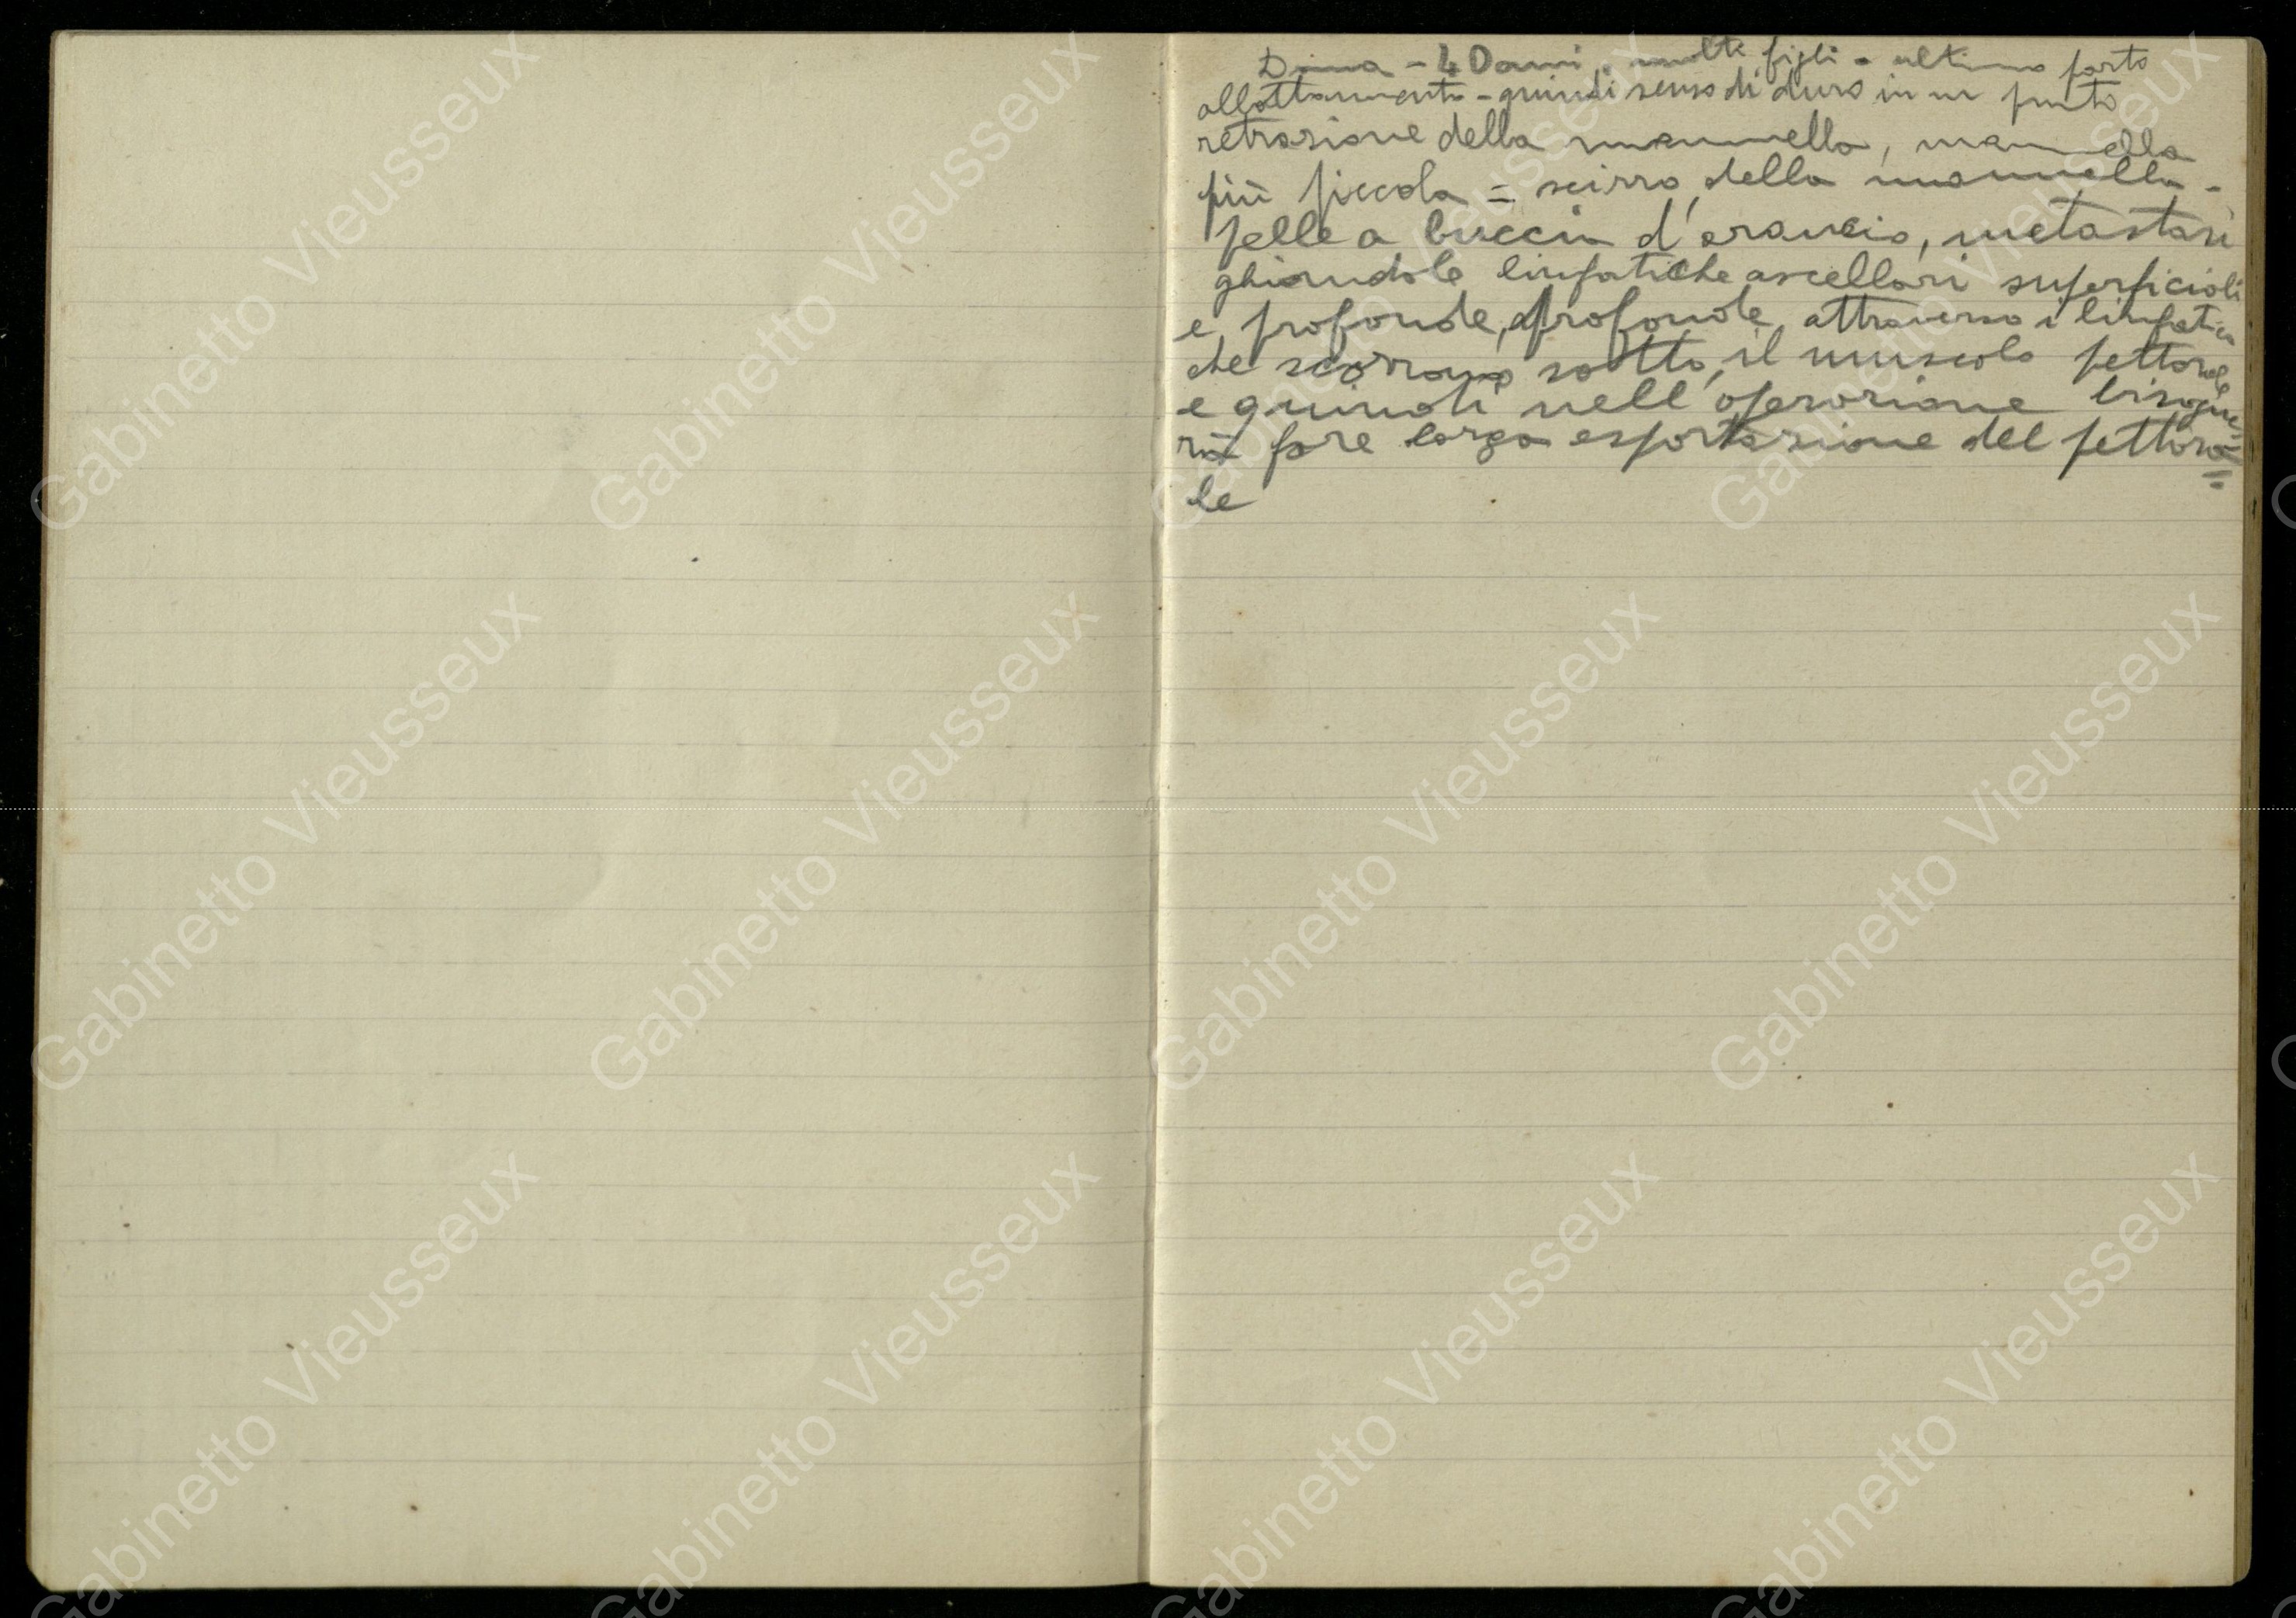 Donna - 40 anni, molti figli - ultimo parto
allattamento - quindi senso di duro in un punto
retrazione della mammella, mammella
più piccola = scirro della mammella -
pelle a buccia d'arancio, metastasi
ghiandole linfatiche ascellari superficiali
e profonde, profonde attraverso i linfatici
che scorrono sotto il muscolo pettorale
e quindi nell'operazione bisogne=
rà fare larga esportazione del pettora=
le